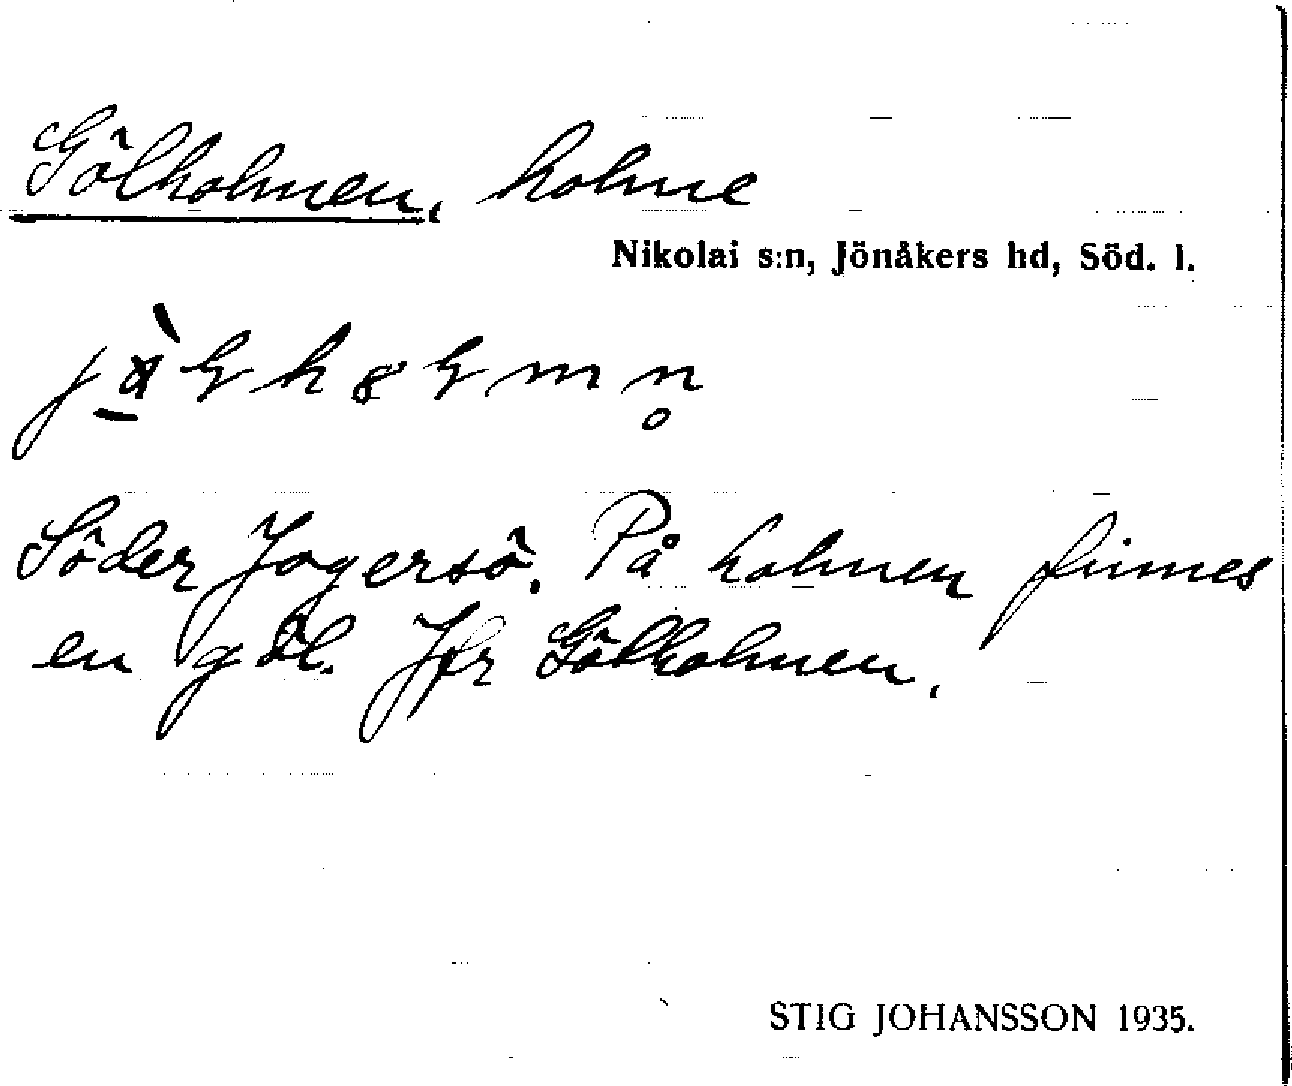 Gölholmen, holme
Nikolai s:n, Jönåkers hd, Söd. l.
Söder Jogersö. På holmen finnes
en göl. Jfr Gölholmen.
STIG JOHANSSON 1935.